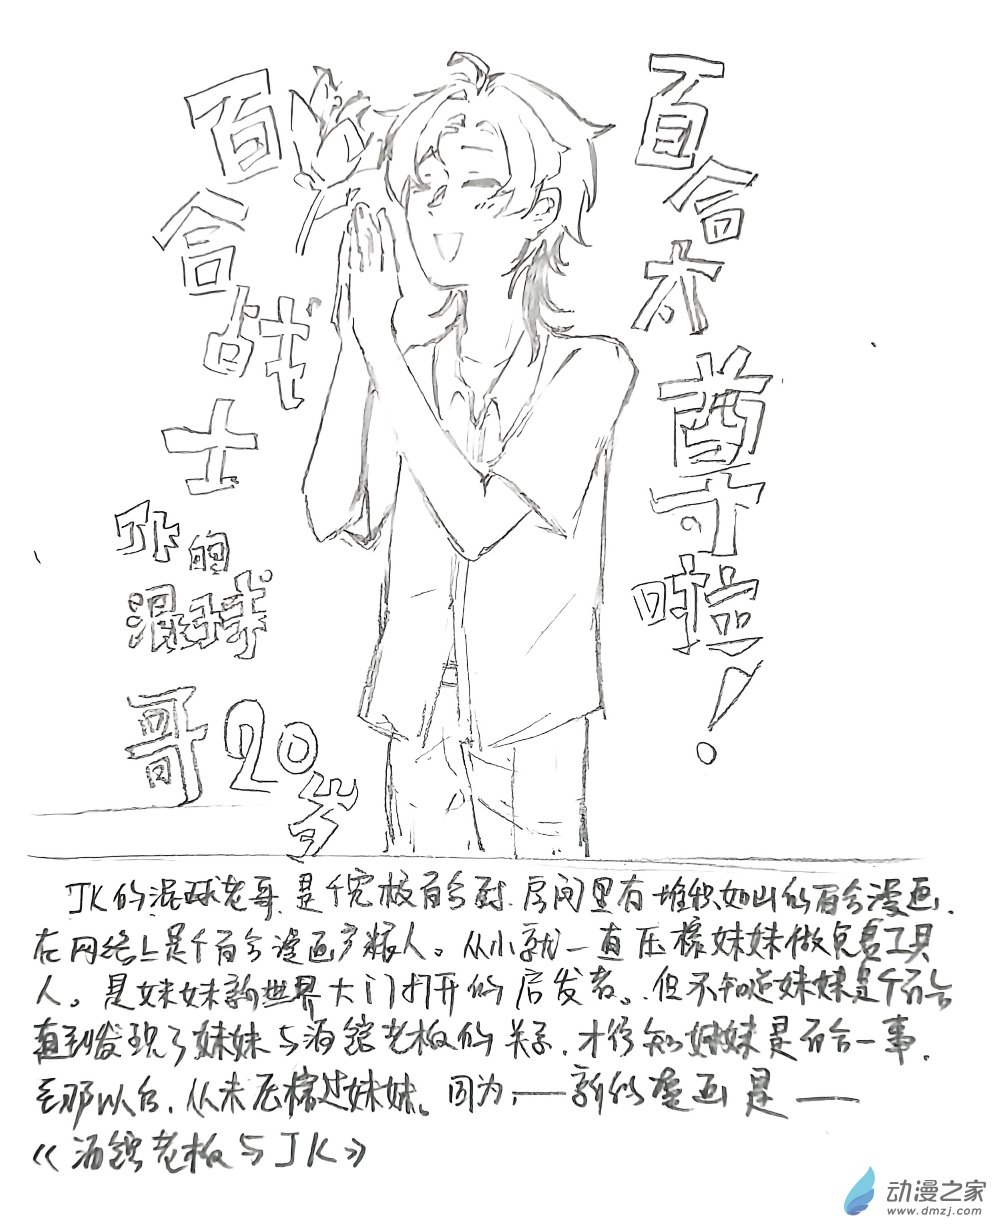 百合太尊啦！
百合战士
JK的
混球
哥20岁
JK的混球老哥.是个究极百合厨.房间里有堆积如山的百合漫画.
在网络上是个百合漫画产粮人。从小就一直压榨妹妹做免费工具
人。是妹妹新世界大门打开的启发者。但不知道妹妹是个百合
直到发现了妹妹与酒馆老板的关系.才得知妹妹是百合一事.
至那以后.从未压榨过妹妹。因为.——新的漫画是——
《酒馆老板与JK》
动漫之家
www.dmzj.com